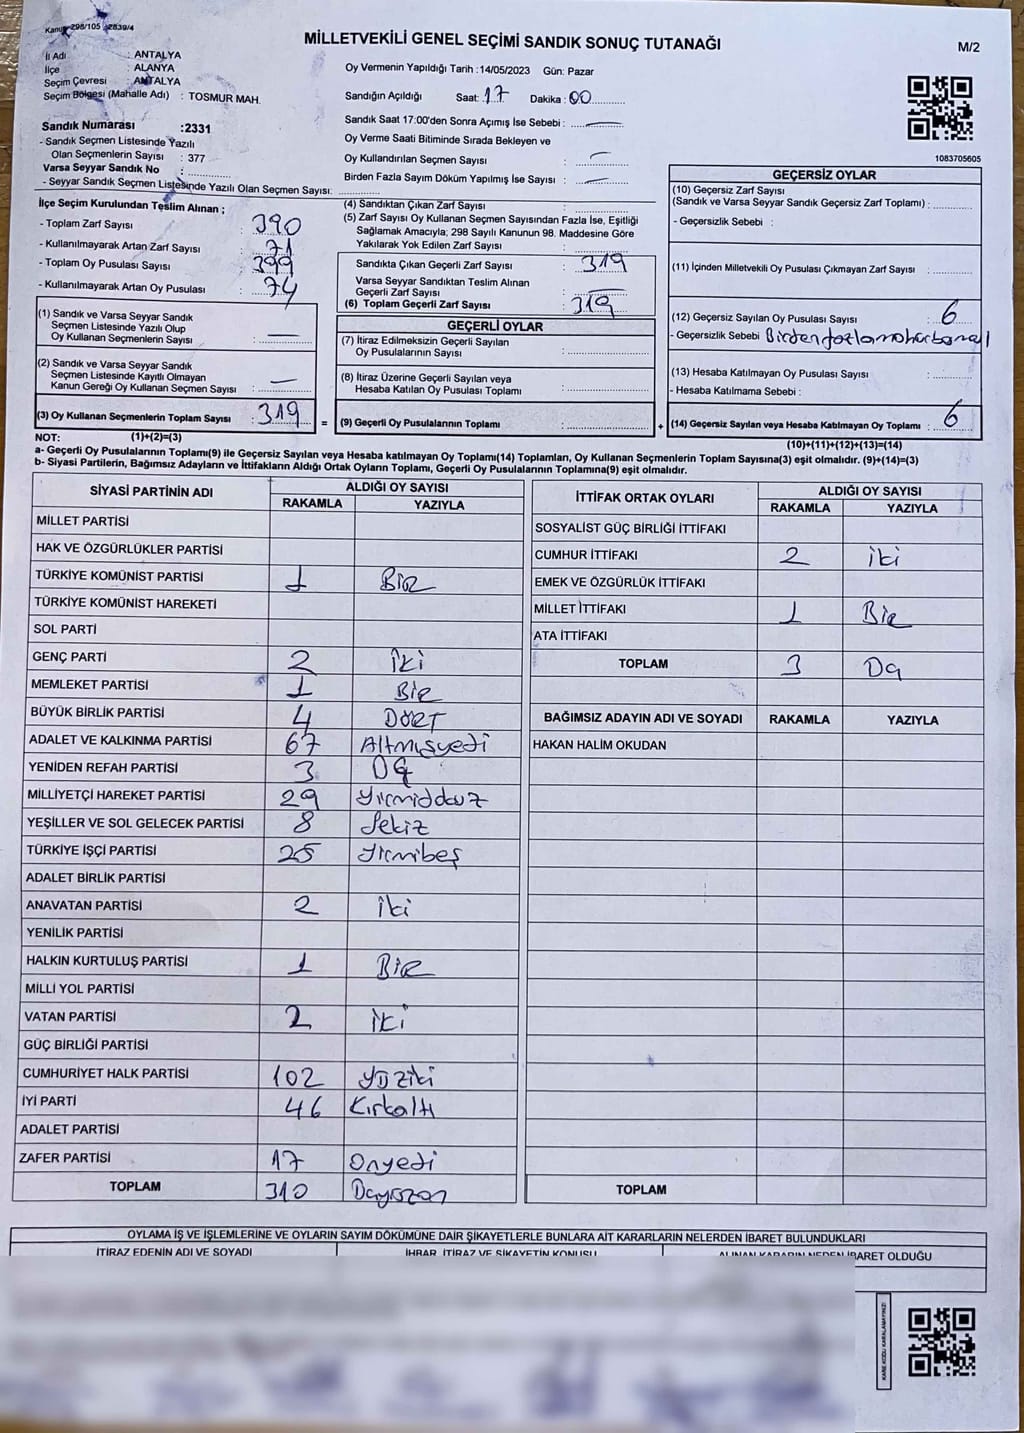 Kanun 298/105 2839/4
MİLLETVEKİLİ GENEL SEÇİMİ SANDIK SONUÇ TUTANAĞI
M/2
İl Adı : ANTALYA
İlçe : ALANYA
Seçim Çevresi : ANTALYA
Seçim Bölgesi (Mahalle Adı) : TOSMUR MAH.
Oy Vermenin Yapıldığı Tarih :14/05/2023 Gün: Pazar
Sandığın Açıldığı Saat: 17 Dakika : 00
Sandık Saat 17:00'den Sonra Açımış İse Sebebi : —
Oy Verme Saati Bitiminde Sırada Bekleyen ve
Oy Kullandırılan Seçmen Sayısı : —
Birden Fazla Sayım Döküm Yapılmış İse Sayısı : —
Sandık Numarası :2331
- Sandık Seçmen Listesinde Yazılı
Olan Seçmenlerin Sayısı : 377
Varsa Seyyar Sandık No :
- Seyyar Sandık Seçmen Listesinde Yazılı Olan Seçmen Sayısı:
1083705605
İlçe Seçim Kurulundan Teslim Alınan ;
- Toplam Zarf Sayısı : 390
- Kullanılmayarak Artan Zarf Sayısı : 71
- Toplam Oy Pusulası Sayısı : 399
- Kullanılmayarak Artan Oy Pusulası : 74
(1) Sandık ve Varsa Seyyar Sandık
Seçmen Listesinde Yazılı Olup
Oy Kullanan Seçmenlerin Sayısı : —
(2) Sandık ve Varsa Seyyar Sandık
Seçmen Listesinde Kayıtlı Olmayan
Kanun Gereği Oy Kullanan Seçmen Sayısı : —
(3) Oy Kullanan Seçmenlerin Toplam Sayısı : 319
(4) Sandıktan Çıkan Zarf Sayısı :
(5) Zarf Sayısı Oy Kullanan Seçmen Sayısından Fazla İse, Eşitliği
Sağlamak Amacıyla; 298 Sayılı Kanunun 98. Maddesine Göre
Yakılarak Yok Edilen Zarf Sayısı :
Sandıkta Çıkan Geçerli Zarf Sayısı : 319
Varsa Seyyar Sandıktan Teslim Alınan
Geçerli Zarf Sayısı : —
(6) Toplam Geçerli Zarf Sayısı : 319
GEÇERLİ OYLAR
(7) İtiraz Edilmeksizin Geçerli Sayılan
Oy Pusulalarının Sayısı :
(8) İtiraz Üzerine Geçerli Sayılan veya
Hesaba Katılan Oy Pusulası Toplamı :
= (9) Geçerli Oy Pusulalarının Toplamı :
GEÇERSİZ OYLAR
(10) Geçersiz Zarf Sayısı
(Sandık ve Varsa Seyyar Sandık Geçersiz Zarf Toplamı) :
- Geçersizlik Sebebi :
(11) İçinden Milletvekili Oy Pusulası Çıkmayan Zarf Sayısı :
(12) Geçersiz Sayılan Oy Pusulası Sayısı : 6
- Geçersizlik Sebebi : Birden fazla
(13) Hesaba Katılmayan Oy Pusulası Sayısı :
- Hesaba Katılmama Sebebi :
+ (14) Geçersiz Sayılan veya Hesaba Katılmayan Oy Toplamı : 6
NOT: (1)+(2)=(3)
(10)+(11)+(12)+(13)=(14)
a- Geçerli Oy Pusulalarının Toplamı(9) ile Geçersiz Sayılan veya Hesaba katılmayan Oy Toplamı(14) Toplamları, Oy Kullanan Seçmenlerin Toplam Sayısına(3) eşit olmalıdır. (9)+(14)=(3)
b- Siyasi Partilerin, Bağımsız Adayların ve İttifakların Aldığı Ortak Oyların Toplamı, Geçerli Oy Pusulalarının Toplamına(9) eşit olmalıdır.
SİYASİ PARTİNİN ADI ALDIĞI OY SAYISI
RAKAMLA YAZIYLA
MİLLET PARTİSİ
HAK VE ÖZGÜRLÜKLER PARTİSİ
TÜRKİYE KOMÜNİST PARTİSİ 1 Bir
TÜRKİYE KOMÜNİST HAREKETİ
SOL PARTİ
GENÇ PARTİ 2 İki
MEMLEKET PARTİSİ 1 Bir
BÜYÜK BİRLİK PARTİSİ 4 DÖRT
ADALET VE KALKINMA PARTİSİ 67 Altmışyedi
YENİDEN REFAH PARTİSİ 3 Üç
MİLLİYETÇİ HAREKET PARTİSİ 29 Yirmidokuz
YEŞİLLER VE SOL GELECEK PARTİSİ 8 Sekiz
TÜRKİYE İŞÇİ PARTİSİ 25 Yirmibeş
ADALET BİRLİK PARTİSİ
ANAVATAN PARTİSİ 2 İki
YENİLİK PARTİSİ
HALKIN KURTULUŞ PARTİSİ 1 Bir
MİLLİ YOL PARTİSİ
VATAN PARTİSİ 2 İki
GÜÇ BİRLİĞİ PARTİSİ
CUMHURİYET HALK PARTİSİ 102 Yüziki
İYİ PARTİ 46 Kırkaltı
ADALET PARTİSİ
ZAFER PARTİSİ 17 Onyedi
TOPLAM 310 Üçyüzon
İTTİFAK ORTAK OYLARI ALDIĞI OY SAYISI
RAKAMLA YAZIYLA
SOSYALİST GÜÇ BİRLİĞİ İTTİFAKI
CUMHUR İTTİFAKI 2 iki
EMEK VE ÖZGÜRLÜK İTTİFAKI
MİLLET İTTİFAKI 1 Bir
ATA İTTİFAKI
TOPLAM 3 Üç
BAĞIMSIZ ADAYIN ADI VE SOYADI RAKAMLA YAZIYLA
HAKAN HALİM OKUDAN
TOPLAM
OYLAMA İŞ VE İŞLEMLERİNE VE OYLARIN SAYIM DÖKÜMÜNE DAİR ŞİKAYETLERLE BUNLARA AİT KARARLARIN NELERDEN İBARET BULUNDUKLARI
İTİRAZ EDENİN ADI VE SOYADI İHBAR, İTİRAZ VE ŞİKAYETİN KONUSU ALINAN KARARIN NEDEN İBARET OLDUĞU
KARE KODU KARALAMAYINIZ!